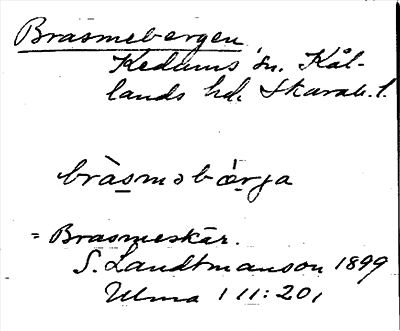 Brasmebergen
Kedums sn. Kål-
lands hd. Skarab. l.
bràsmǝbærja
= Brasmeskär.
S. Landtmanson 1899
Ulma 111:201